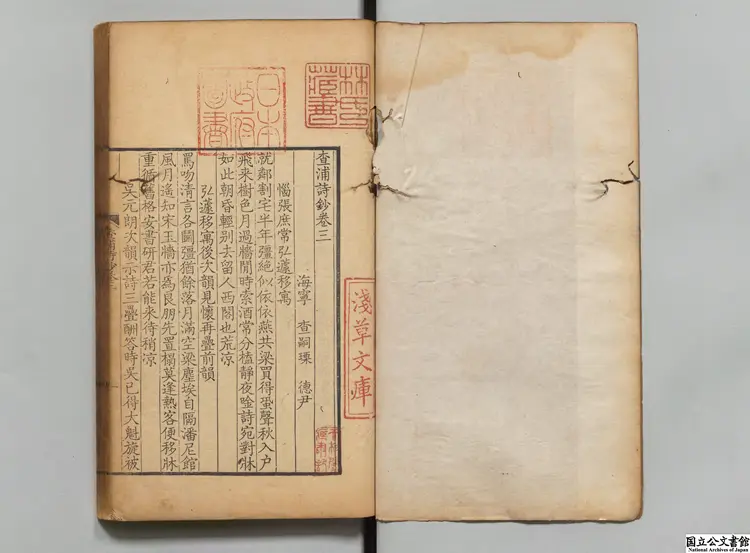 查浦詩鈔卷三
海寧 查嗣瑮 德尹
惱張庶常弘蘧移寓
就鄰割宅半年彊絕似依依燕共梁買得蛩聲秋入户
飛來樹色月過牆閒時索酒常分榼靜夜唫詩宛對牀
如此朝昏輕別去留人西閣也荒凉
弘蘧移寓後次韻見懷再疊前韻
罵吻清言各鬭彊猶餘落月滿空梁塵埃自隔潘尼館
風月遙知宋玉牆亦為良朋先置榻莫逢熱客便移牀
重循舊格安書研君若能來待稍凉
吳元朗次韻示詩三疊酬答時吳已得大魁旋被
林氏藏書
日本政府圖書
淺草文庫
国立公文書館
National Archives of Japan